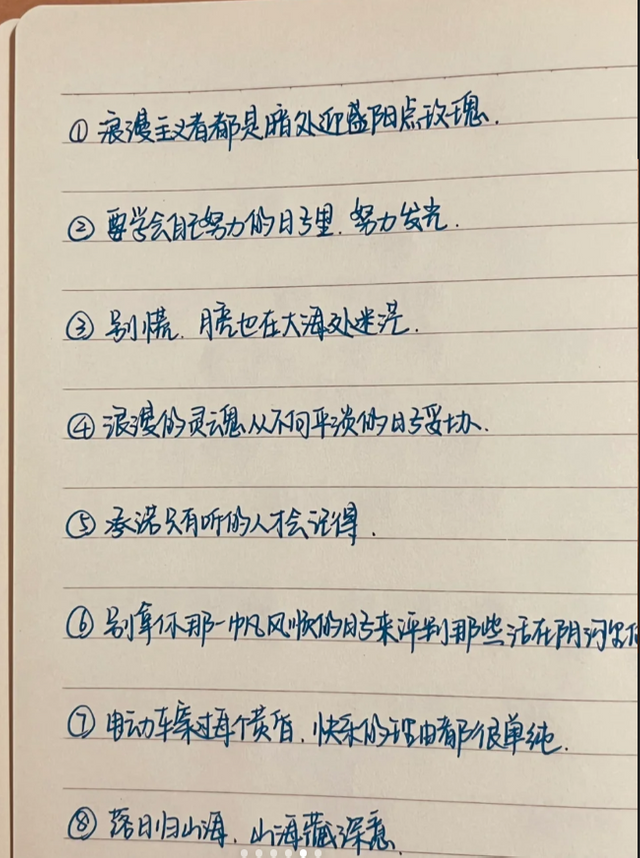 ① 浪漫主义者都是暗处迎盛阳点玫瑰.
② 要学会自己努力的日子里.努力发光.
③ 别慌.月亮也在大海处迷茫.
④ 浪漫的灵魂从不向平淡的日子妥协.
⑤ 承诺只有听的人才会记得.
⑥ 别拿你那一帆风顺的日子来评判那些活在阴沟
⑦ 电动车穿过每个黄昏.快乐的理由都很单纯.
⑧ 落日归山海.山海藏深意.